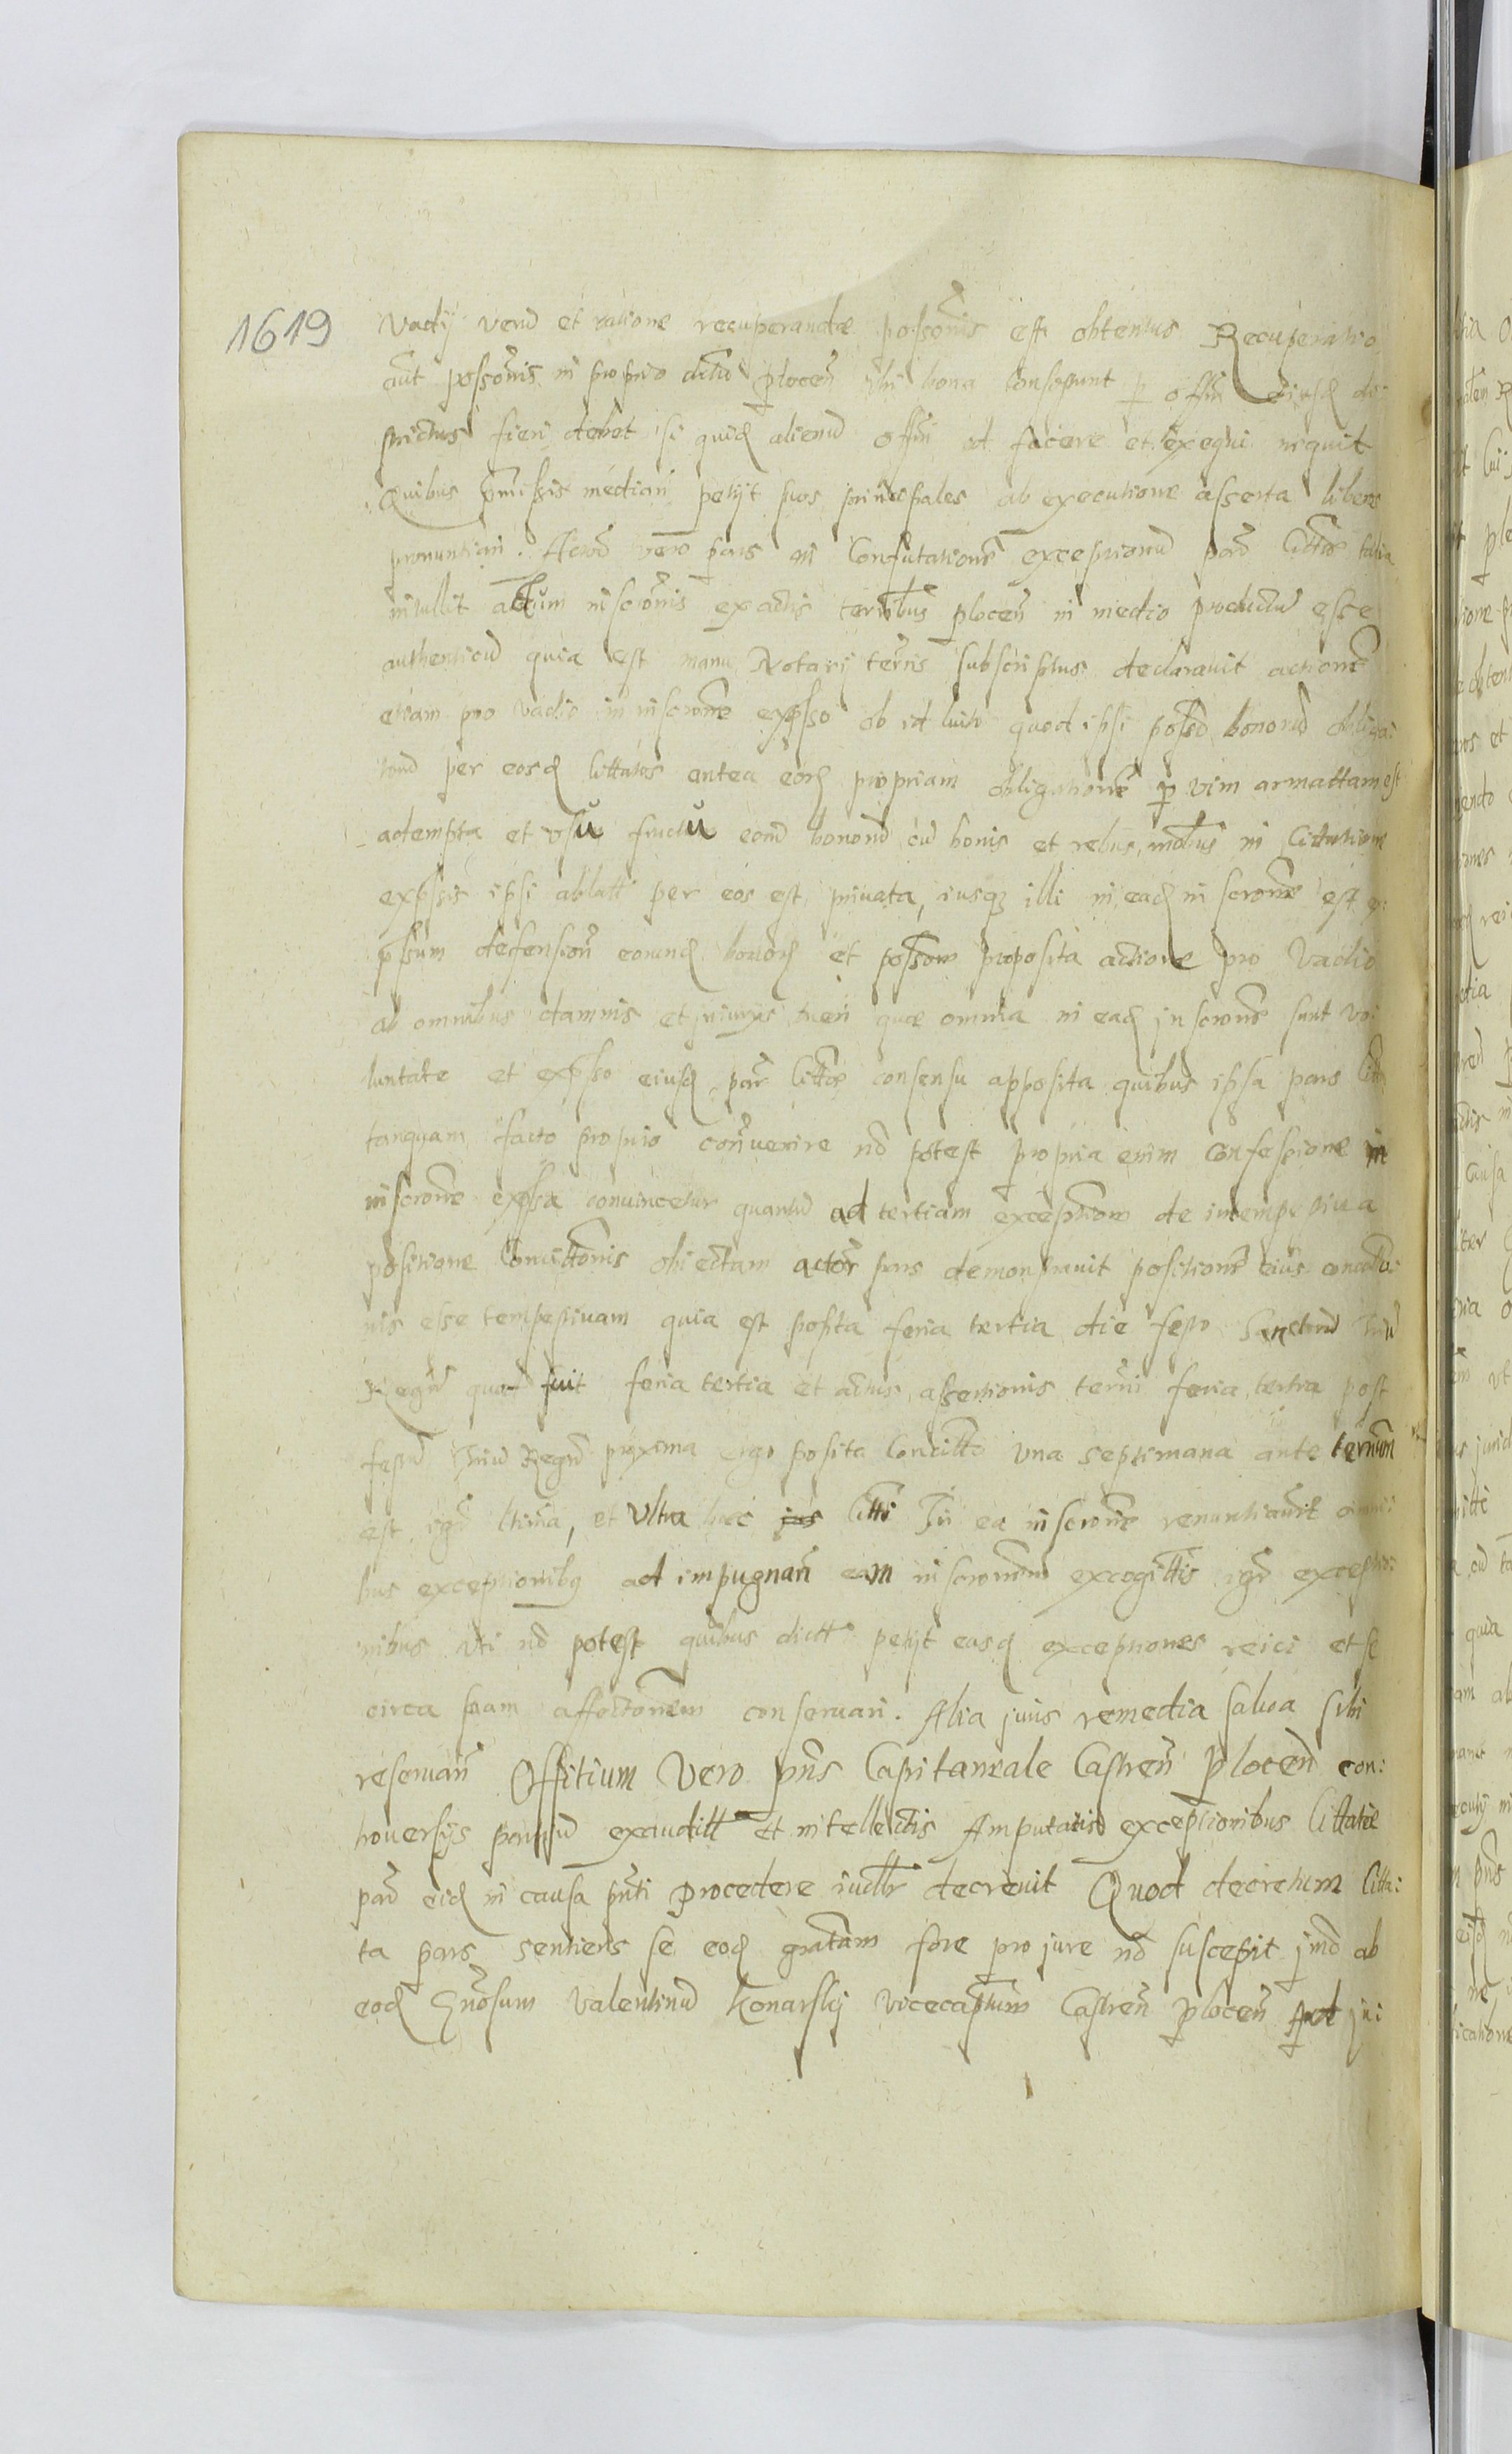 1619
Vadij verũ et ratione recuperandæ possõnis est obtentus Recuperatio
aũt possõnis in proprio distũ plocẽn ubi bona consistunt p offiũ eiusd dis
strictus fieri debet si quid alienũ offiũ id facere et exequi nequit
Quibus pmissis median petijt suos principales ab executione asserta liberos
pronuntiari. Actorã vero pars in Confutationẽ exceptionũ partis Citttæ talia
intullit actum inscrõnis ex actis terribus plocẽn in medio productũ esse
authenticũ quia est manu Notarij terris subscriptus declarauit actionẽ
etiam pro vadio in inscrõne expsso ob id luit quod ipsi possõ bonorũ obliga:
torũ per eosd cittatos antea eorũ propriam obligationẽ p vim armattam est
adempta et vsu fructu eorũ bonorũ cũ bonis et rebus mobus in Cittatione
expssis ipsi ablatt per eos est priuata, iusq illi in ead inscrõne est ex:
pssum defensioñ eorund bonorũ et possõm proposita actione pro Vadio
ab omnibus damnis et iniurijs tueri quæ omnia in ead inscrõne sunt vo:
luntate et expsso eiusd par cittæ consensu apposita quibus ipsa pars citt
tanquam facto proprio contrauenire nõ potest propria enim confessione in
inscrõne expssa conuincetur quantũ ad tertiam exceptiom de intempestiua
positione Concittõnis obiectam actor pars demonstrauit positionẽ eius concittõ:
nis esse tempestiuam quia est posita feria tertia die festo Sanctorũ Triũ
Regũ quod fuit feria tertia et actus assertionis termi feria tertia post
festũ Triũ Regũ proxima ergo posita Concitto vna septimana ante termum
est igr ltima, et Vltra hoc citti Tñ ea inscrõne renuntiauit omni:
bus exceptionibq ad impugnañ eam inscronem excogittis igr exceptio:
nibus vti nõ potest quibus dictt petijt easd exceptiones reici et se
circa suam affectõnem conseruari. Alia juris remedia salua sibi
reseruañ Offitium Vero pñs Capitaneale Castreñ Plocẽn con:
trouersijs partiũ exauditt et intellectis Amputatis exceptionibus Cittatæ
partis eid in causa pñti procedere iudlr decreuit Quod decretum citta:
ta pars sentiens se eod grauatam fore pro jure nõ suscepit imõ ab
eod Gnosum Valentinũ Konarskj vicecaptum Castreñ plocẽn Ad ju: